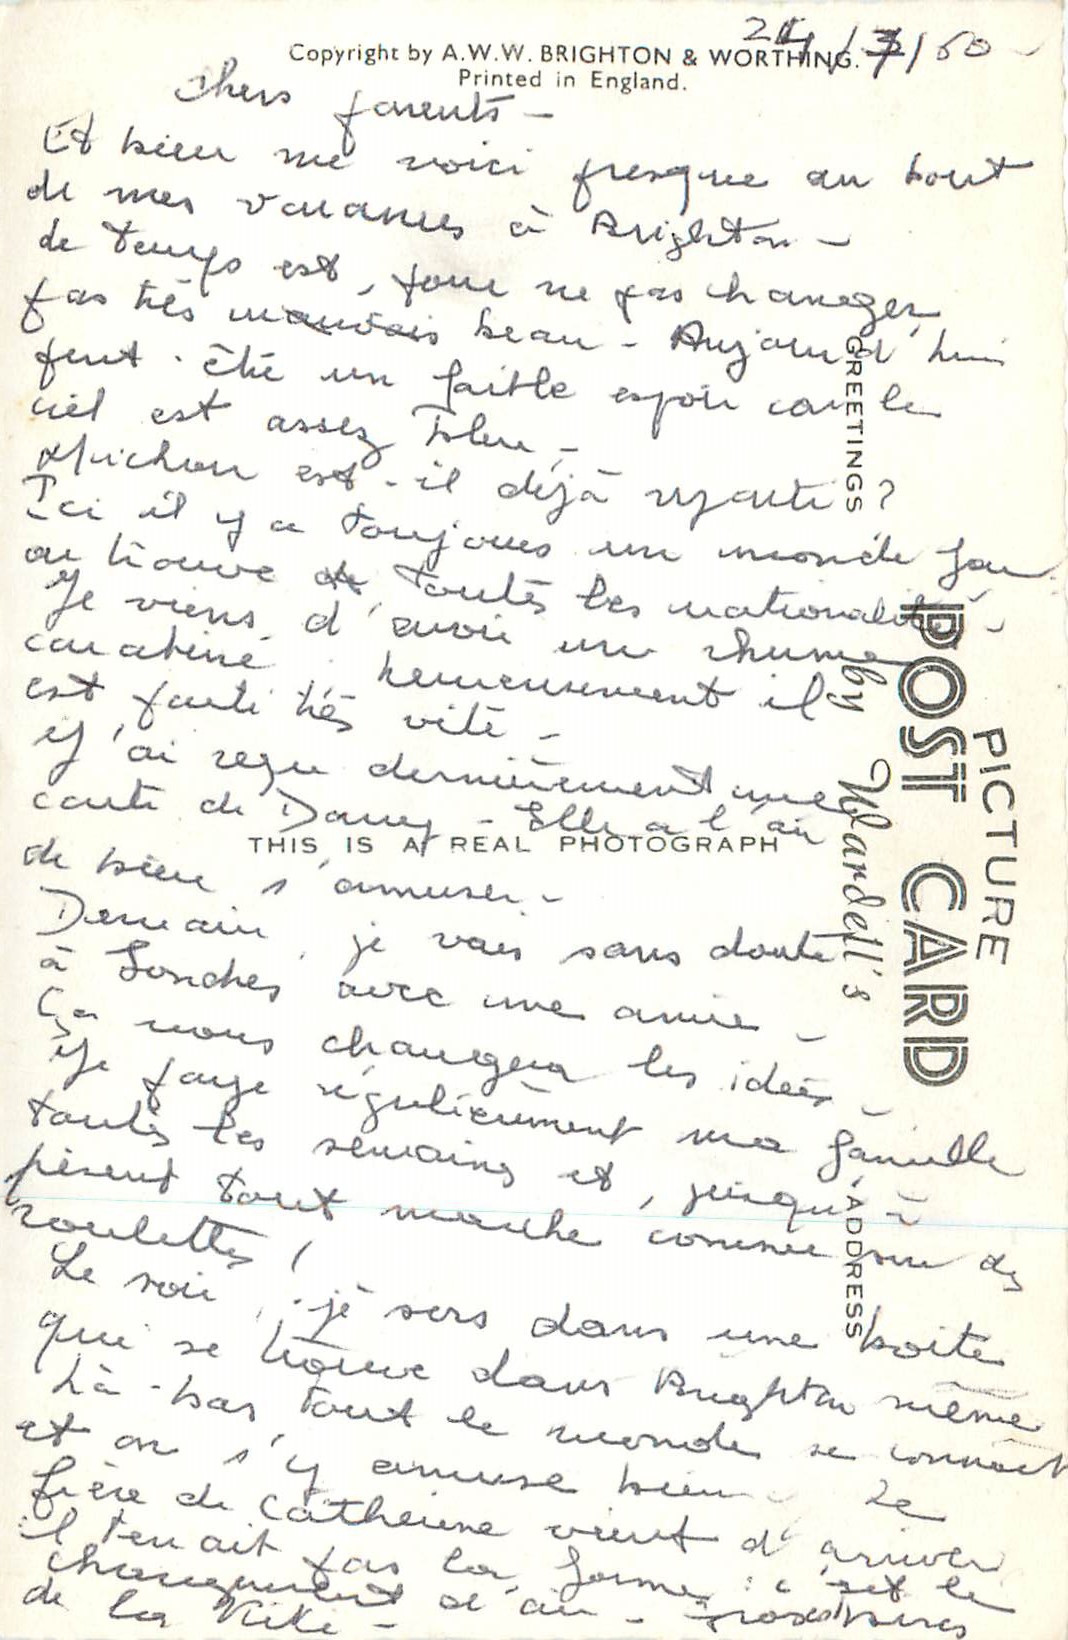 Copyright by A.W.W. BRIGHTON & WORTHING.
Printed in England.
24/7/60
Chers parents -
Et bien me voici presque au bout
de mes vacances à Brighton -
de temps est, pour ne pas changer,
pas très mauvais beau - Aujourd'hui
peut-être un faible espoir car le
ciel est assez bleu -
Michou est-il déjà reparti ?
Ici il y a toujours un monde fou
on trouve de toutes les nationalités -
Je viens d'avoir un rhume
carabiné heureusement il
est parti très vite -
J'ai reçu dernièrement une
carte de Dany - Elle a l'air
de bien s'amuser -
Demain, je vais sans doute
à Londres avec une amie -
Ça nous changera les idées -
Je paye régulièrement ma famille
toutes les semaines et, jusqu'à
présent tout marche comme sur des
roulettes !
Le soir, je sors dans une boîte
qui se trouve dans Brighton même
Là-bas tout le monde se connaît
et on s'y amuse bien - Le
frère de Catherine vient d'arriver
il tenait pas la forme : c'est le
changement d'air - Grosses bises
de la Kiki -
THIS IS A REAL PHOTOGRAPH
GREETINGS
ADDRESS
by Wardell's
POST CARD
PICTURE